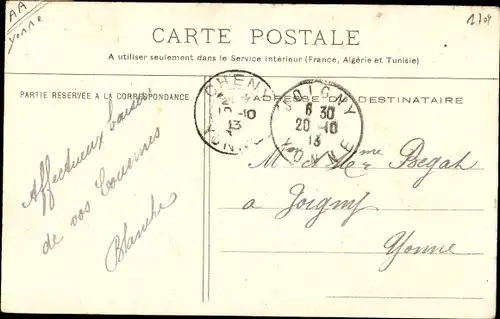 AA
Yonne
1 d 01
CARTE POSTALE
A utiliser seulement dans le Service intérieur (France, Algérie et Tunisie)
PARTIE RÉSERVÉE A LA CORRESPONDANCE
ADRESSE DU DESTINATAIRE
CHENY
10
13
YONNE
JOIGNY
6 30
20 -10
13
YONNE
Affectueux baisers
de vos
Blanche
M. & Mme Begah
à Joigny
Yonne